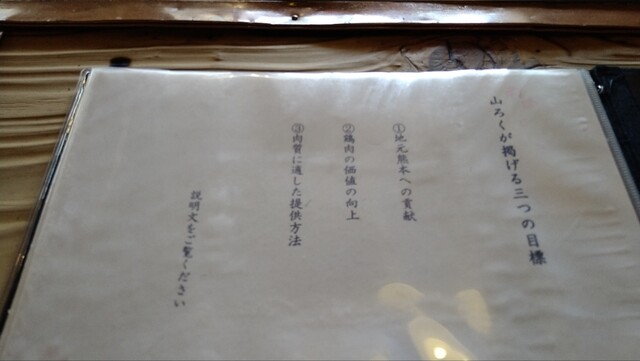 山ろくが掲げる三つの目標
①地元熊本への貢献
②鶏肉の価値の向上
③肉質に適した提供方法
説明文をご覧ください